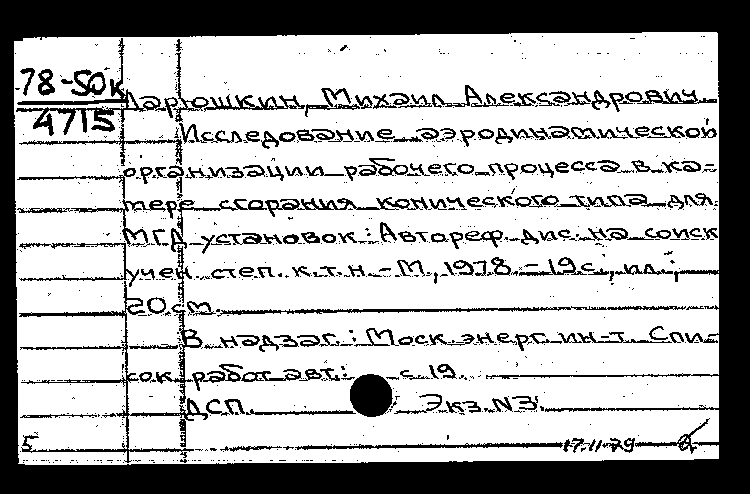 78-50к
4715
Ларюшкин, Михаил Александрович.
Исследование аэродинамической
организации рабочего процесса в ка-
мере сгорания конического типа для
МГД установок: Автореф. дис. на соиск
учен. степ. к.т.н. - М., 1978. - 19 с., ил.;
20 см.
В надзаг.: Моск. энерг. ин-т. Спи-
сок работ авт.: с. 19.
ДСП. Экз. N3.
5 17.11.79